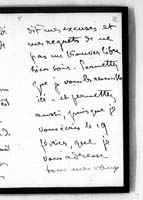 dit mes excuses et
mes regrets de ne
pas me trouver libre
bien sois. Permettez
que je vous les renouvelle
ici - et permettez
aussi, puisque je
vous écris le 19
février, que je
vous adresse
tous mes vœux